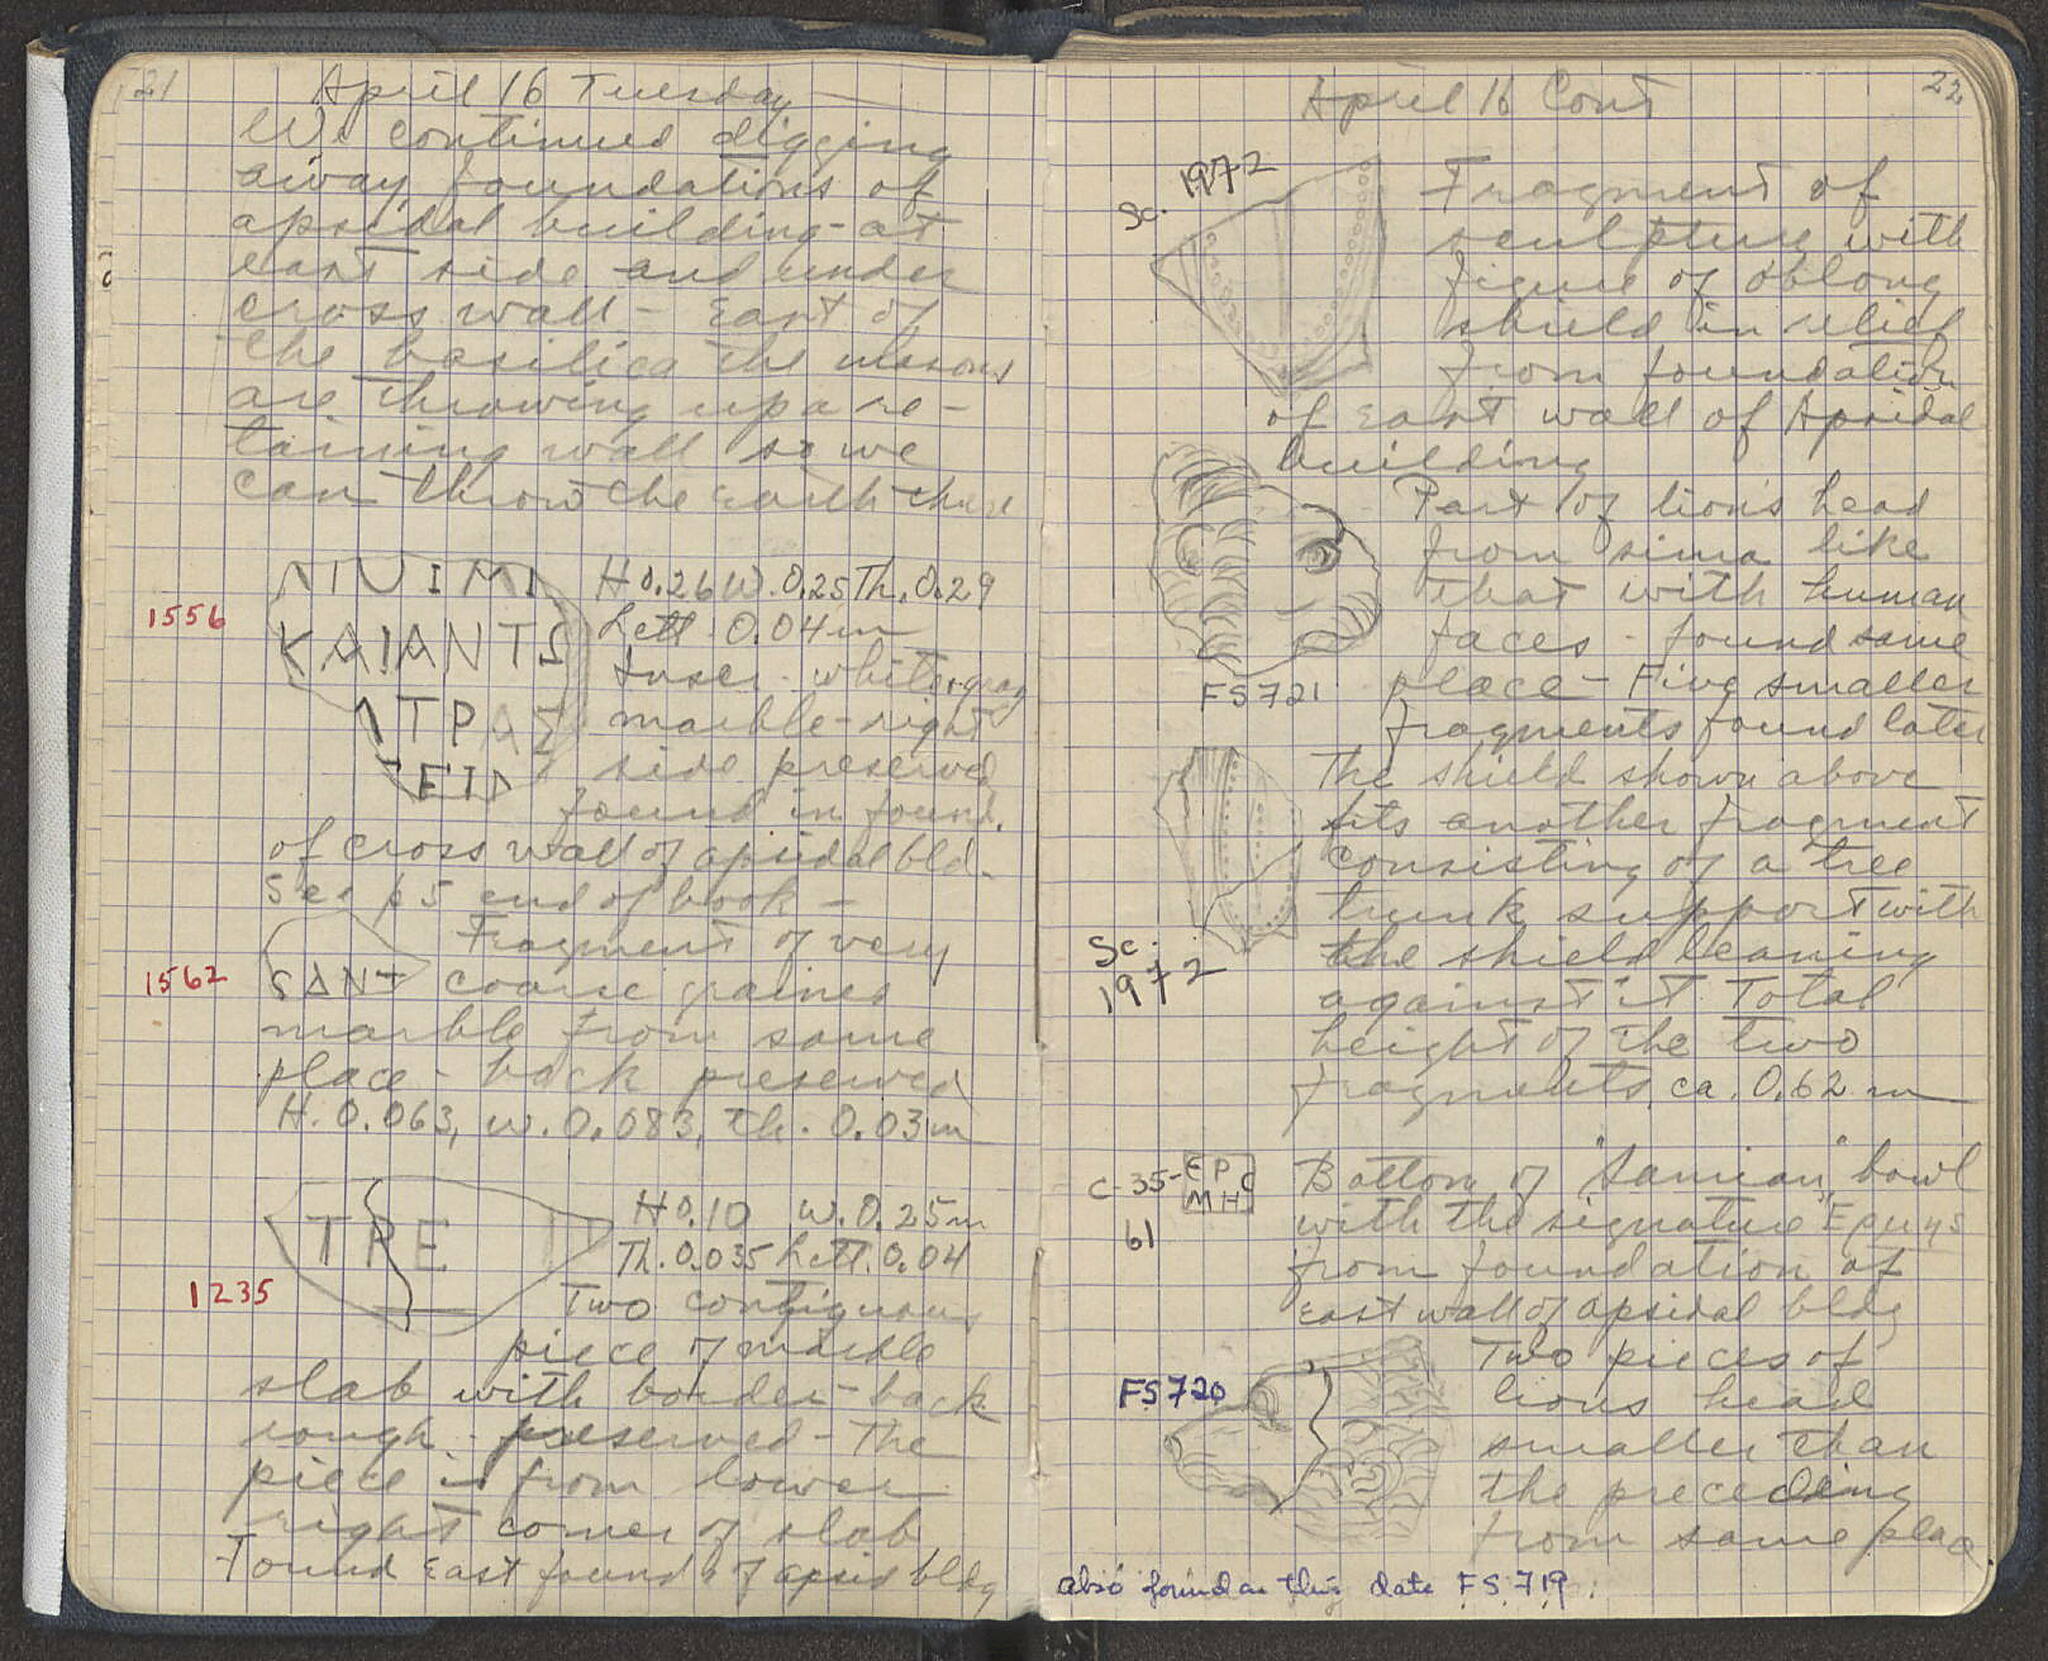 21
April 16 Tuesday
We continued digging
away foundations of
apsidal building - at
east side and under
cross wall - East of
the basilica the masons
are throwing up a re-
taining wall so we
can throw the earth there
1556
NIVIMI
KAIANTS
ITPAE
EID
H 0.26 W. 0.25 Th. 0.29
Lett. 0.04 m
Inscr. white + gray
marble - right
side preserved
found in found.
of cross wall of apsidal bld.
See p 5 end of book -
1562
SANT
Fragment of very
coarse grained
marble from same
place - back preserved
H. 0.063, W. 0.083, th. 0.03 m
1235
TRE
H 0.10 W. 0.25 m
Th. 0.035 Lett. 0.04
Two contiguous
piece of marble
slab with border - back
rough - preserved - The
piece is from lower
right corner of slab
Found East found. of apsid bldg
22
April 16 Cont
Sc. 1972
Fragment of
sculpture with
figure of oblong
shield in relief
from foundation
of East wall of Apsidal
building
Part of lion's head
from sima like
that with human
faces - found same
place - Five smaller
fragments found later
FS 721
The shield shown above
fits another fragment
consisting of a tree
trunk support with
the shield leaning
against it Total
height of the two
fragments ca. 0.62 m
Sc.
1972
C-35-
61
EPC
MH
Bottom of "Samian" bowl
with the signature
from foundation of
East wall of apsidal bldg
FS 720
Two pieces of
lions head
smaller than
the preceding
from same place
also found on this date FS 719.